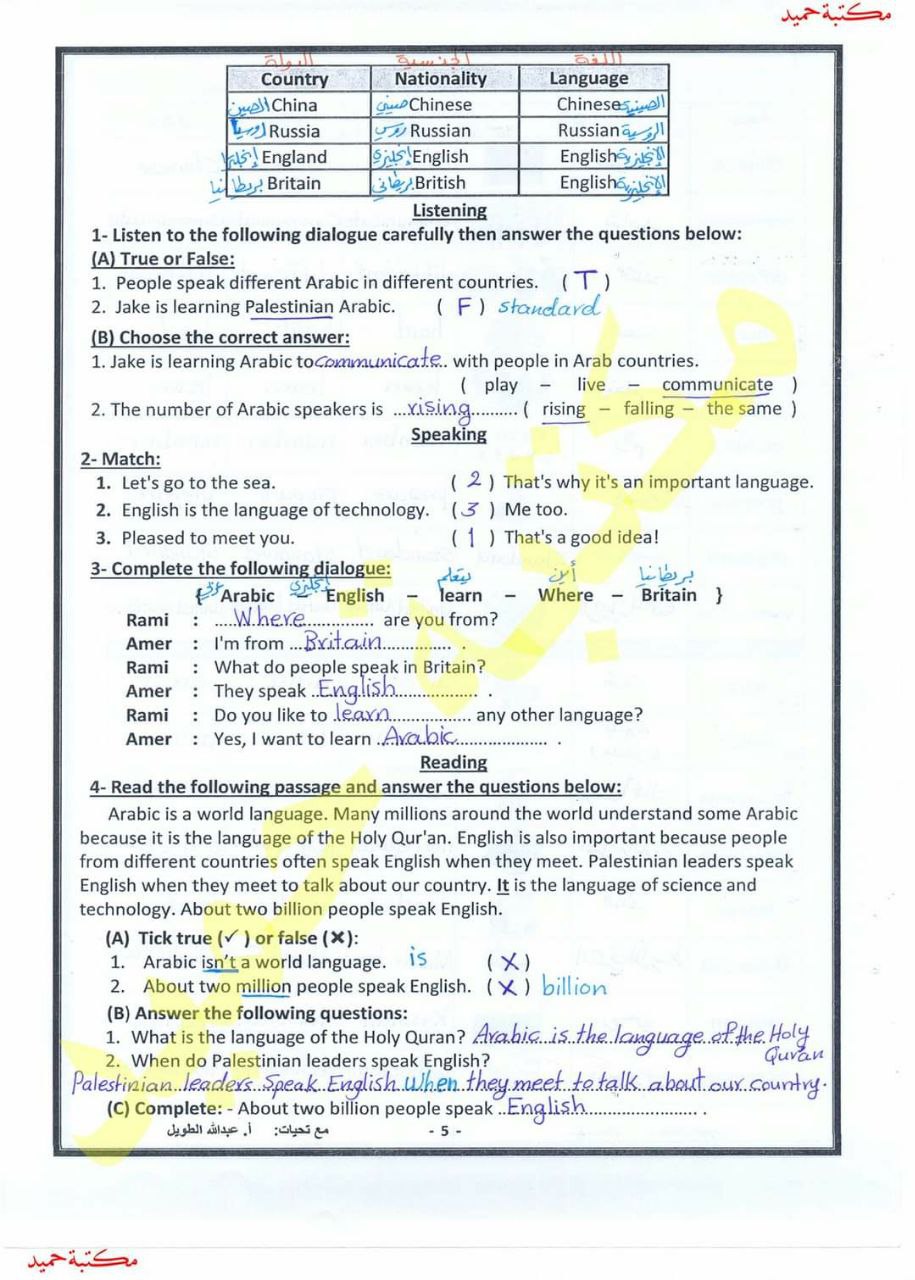 مكتبة حميد
الدولة الجنسية اللغة
Country Nationality Language
الصين China صيني Chinese Chinese الصينية
روسيا Russia روسي Russian Russian الروسية
إنجلترا England إنجليزي English English الإنجليزية
بريطانيا Britain بريطاني British English الإنجليزية
Listening
1- Listen to the following dialogue carefully then answer the questions below:
(A) True or False:
1. People speak different Arabic in different countries. ( T )
2. Jake is learning Palestinian Arabic. ( F ) standard
(B) Choose the correct answer:
1. Jake is learning Arabic to communicate.. with people in Arab countries.
( play – live – communicate )
2. The number of Arabic speakers is ...rising.......... ( rising – falling – the same )
Speaking
2- Match:
1. Let's go to the sea. ( 2 ) That's why it's an important language.
2. English is the language of technology. ( 3 ) Me too.
3. Pleased to meet you. ( 1 ) That's a good idea!
3- Complete the following dialogue:
عربي إنجليزي يتعلم أين بريطانيا
{ Arabic – English – learn – Where – Britain }
Rami : ....Where.............. are you from?
Amer : I'm from ...Britain.............. .
Rami : What do people speak in Britain?
Amer : They speak .English................. .
Rami : Do you like to .learn................. any other language?
Amer : Yes, I want to learn ..Arabic...................... .
Reading
4- Read the following passage and answer the questions below:
Arabic is a world language. Many millions around the world understand some Arabic
because it is the language of the Holy Qur'an. English is also important because people
from different countries often speak English when they meet. Palestinian leaders speak
English when they meet to talk about our country. It is the language of science and
technology. About two billion people speak English.
(A) Tick true (✓) or false (✗):
1. Arabic isn't a world language. is ( X )
2. About two million people speak English. ( X ) billion
(B) Answer the following questions:
1. What is the language of the Holy Quran? Arabic is the language of the Holy
Quran
2. When do Palestinian leaders speak English?
Palestinian leaders Speak English when they meet to talk about our country.
(C) Complete: - About two billion people speak ..English........................ .
مع تحيات: أ. عبدالله الطويل - 5 -
مكتبة حميد